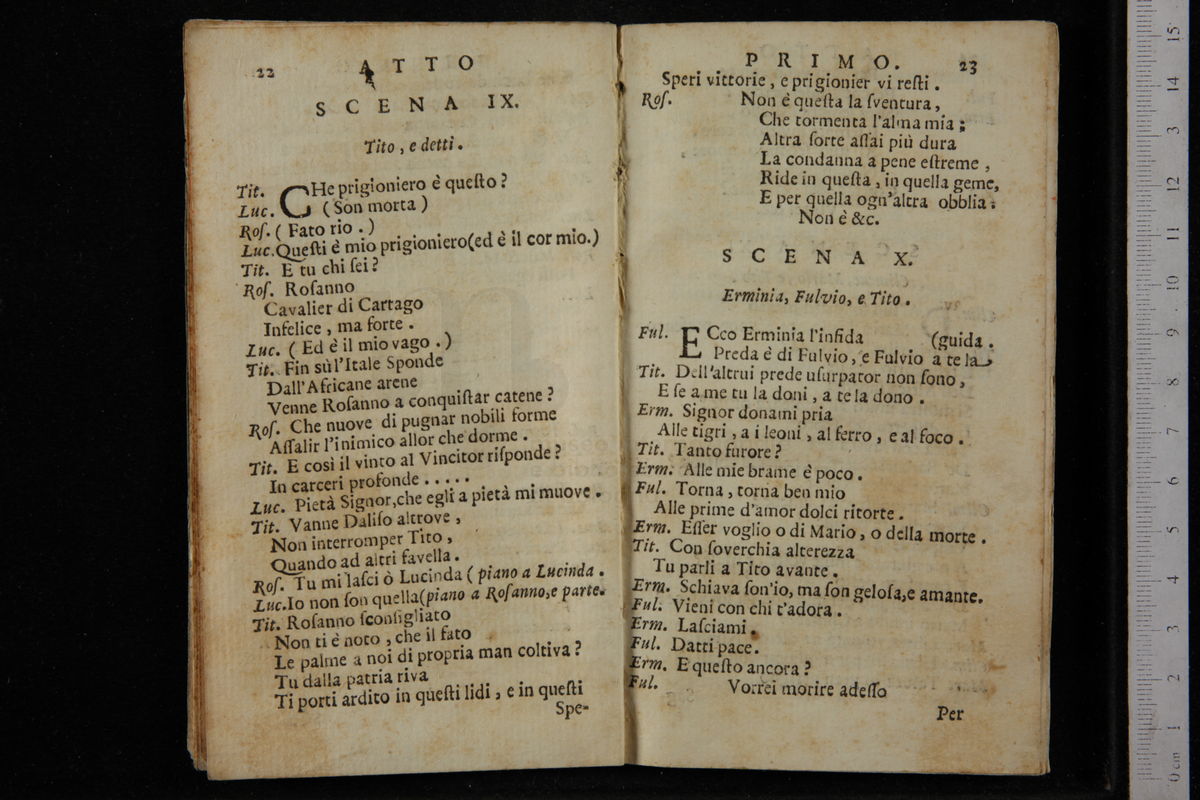 22 ATTO
SCENA IX.
Tito, e detti.
Tit. CHe prigioniero è queſto?
Luc. (Son morta)
Roſ. (Fato rio.)
Luc. Queſti è mio prigioniero (ed è il cor mio.)
Tit. E tu chi ſei?
Roſ. Roſanno
Cavalier di Cartago
Infelice, ma forte.
Luc. (Ed è il mio vago.)
Tit. Fin sù l'Itale Sponde
Dall'Africane arene
Venne Roſanno a conquiſtar catene?
Roſ. Che nuove di pugnar nobili forme
Aſſalir l'inimico allor che dorme.
Tit. E così il vinto al Vincitor riſponde?
In carceri profonde . . . . .
Luc. Pietà Signor, che egli a pietà mi muove.
Tit. Vanne Daliſo altrove,
Non interromper Tito,
Quando ad altri favella.
Roſ. Tu mi laſci ò Lucinda (piano a Lucinda.
Luc. Io non ſon quella (piano a Roſanno, e parte.
Tit. Roſanno ſconſigliato
Non ti è noto, che il fato
Le palme a noi di propria man coltiva?
Tu dalla patria riva
Ti porti ardito in queſti lidi, e in queſti
Spe-
PRIMO. 23
Speri vittorie, e prigionier vi reſti.
Roſ. Non è queſta la ſventura,
Che tormenta l'alma mia;
Altra ſorte aſſai più dura
La condanna a pene eſtreme,
Ride in queſta, in quella geme,
E per quella ogn'altra obblia.
Non è &c.
SCENA X.
Erminia, Fulvio, e Tito.
Ful. ECco Erminia l'infida (guida.
Preda è di Fulvio, e Fulvio a te la
Tit. Dell'altrui prede uſurpator non ſono,
E ſe a me tu la doni, a te la dono.
Erm. Signor donami pria
Alle tigri, a i leoni, al ferro, e al foco.
Tit. Tanto furore?
Erm. Alle mie brame è poco.
Ful. Torna, torna ben mio
Alle prime d'amor dolci ritorte.
Erm. Eſſer voglio o di Mario, o della morte.
Tit. Con ſoverchia alterezza
Tu parli a Tito avante.
Erm. Schiava ſon'io, ma ſon geloſa, e amante.
Ful. Vieni con chi t'adora.
Erm. Laſciami.
Ful. Datti pace.
Erm. E queſto ancora?
Ful. Vorrei morire adeſſo
Per
0 cm 1 2 3 4 5 6 7 8 9 10 11 12 13 14 15